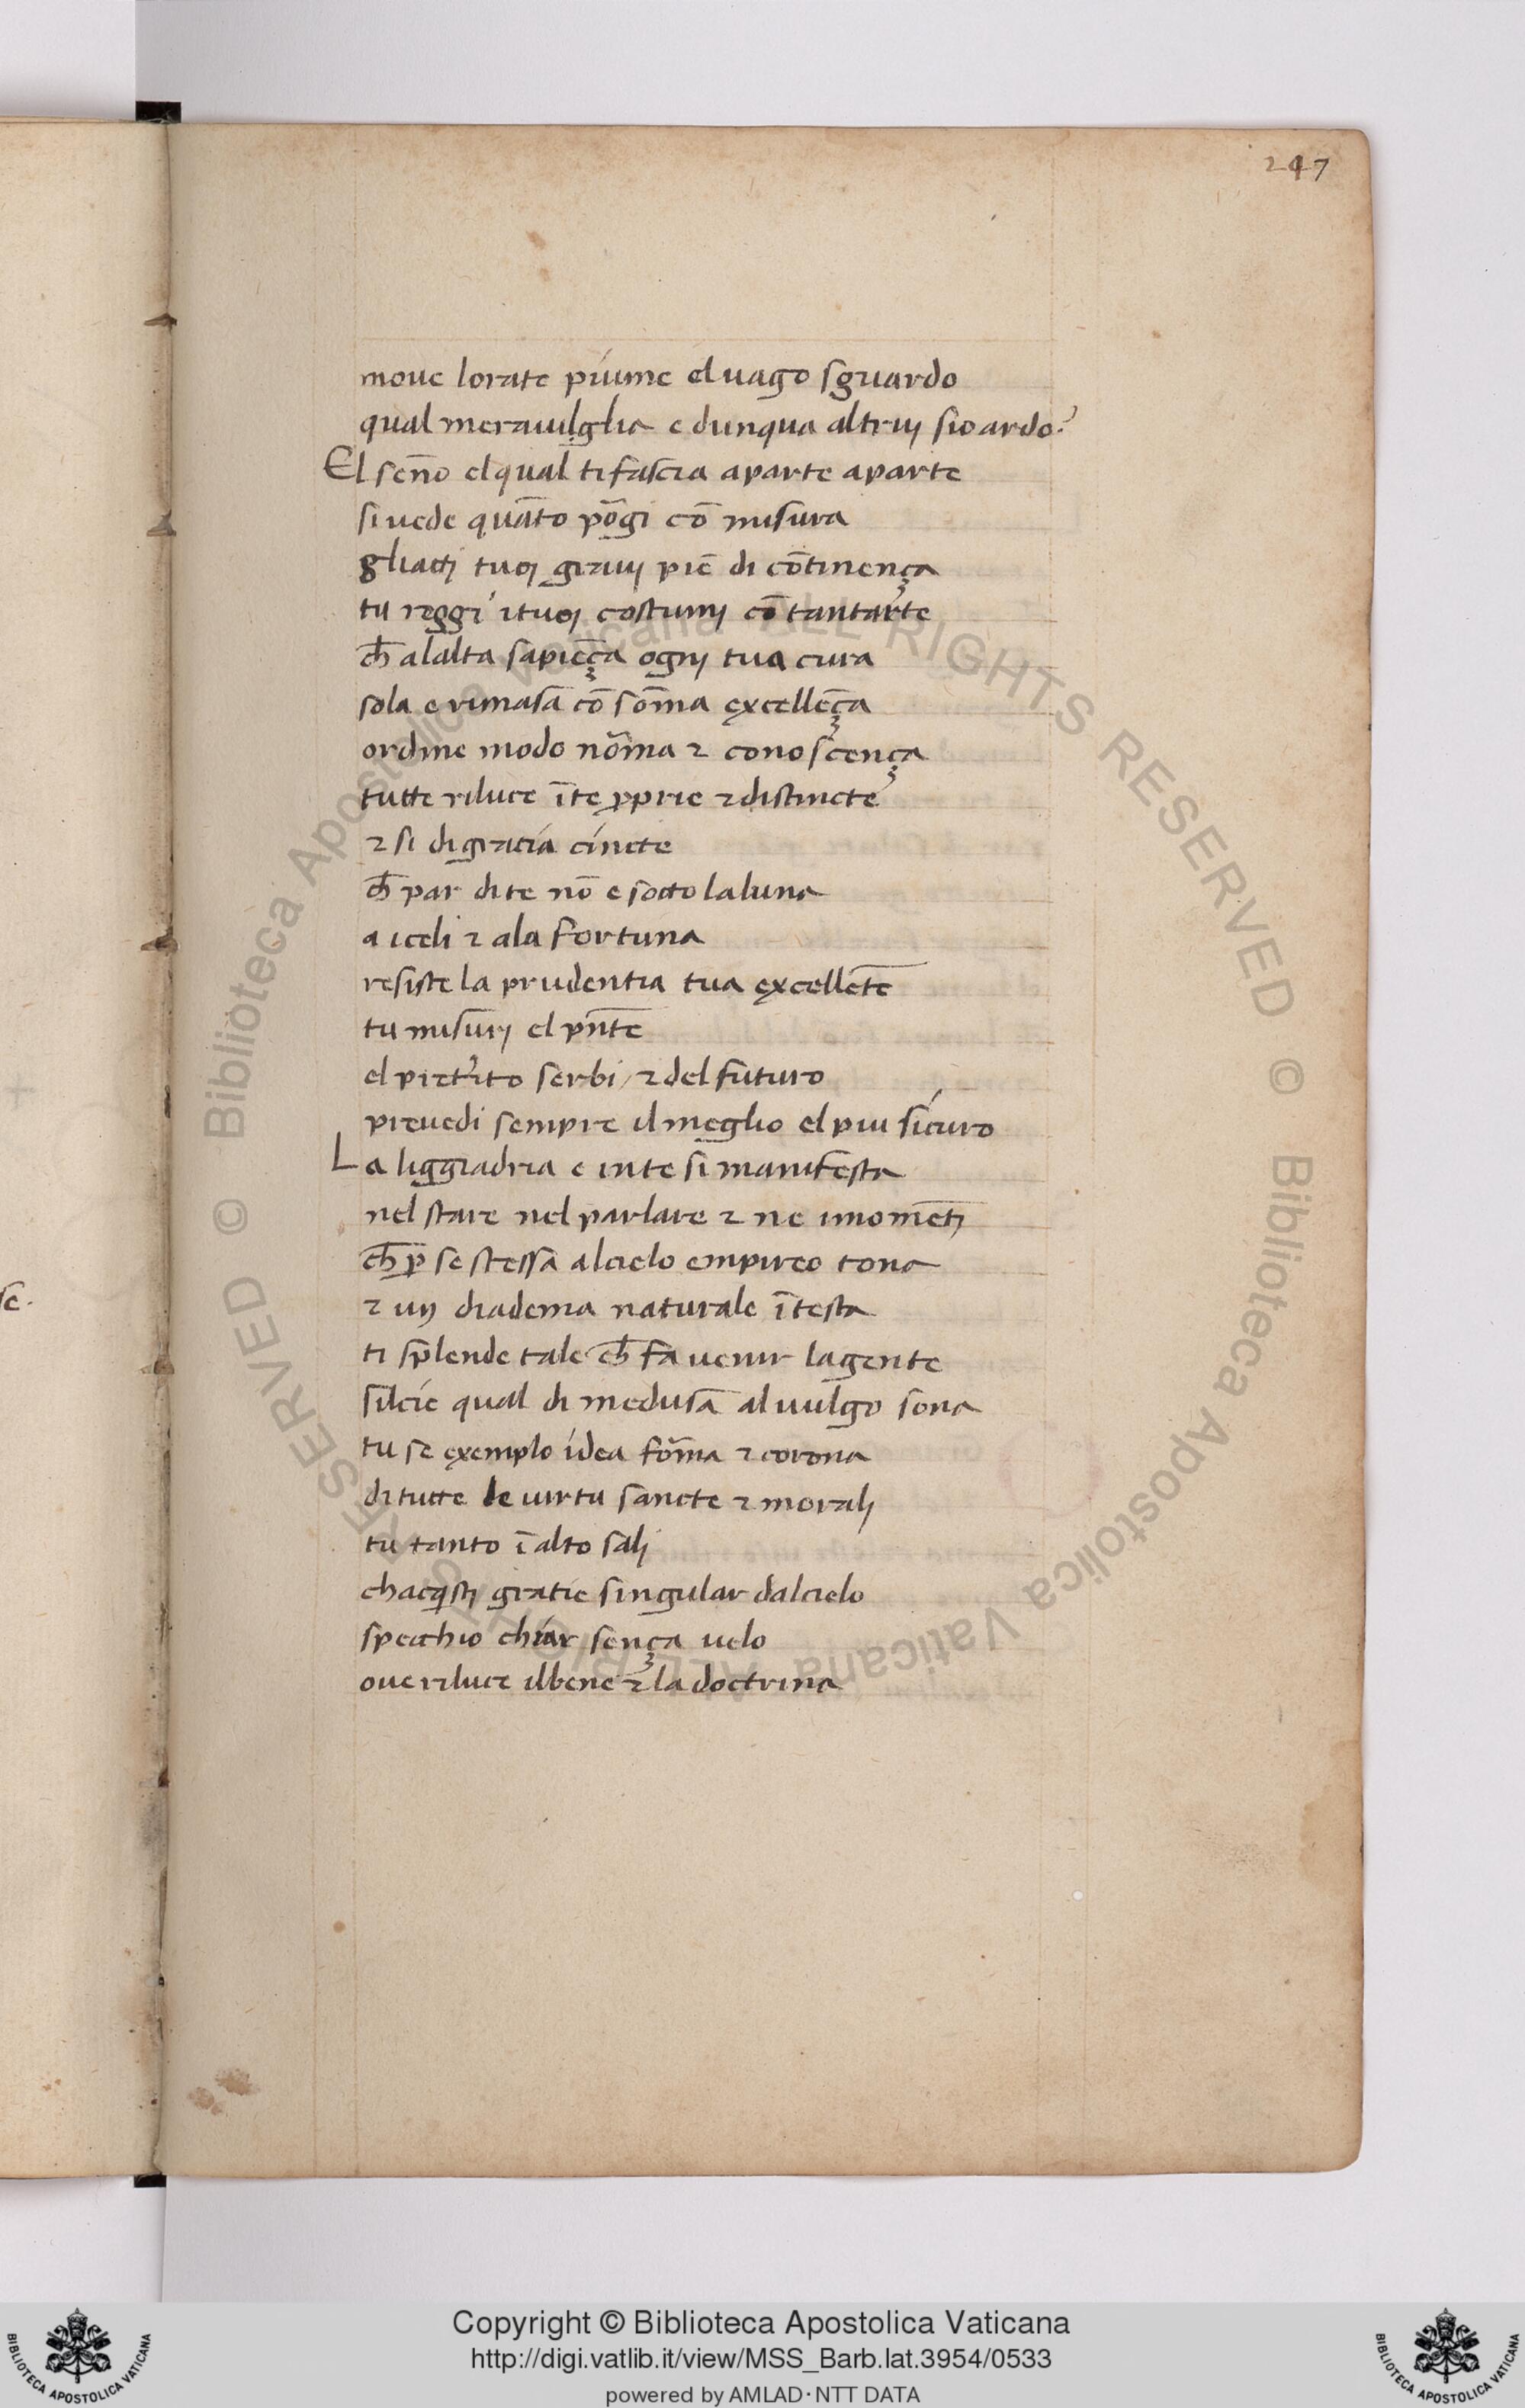 247
moue lorate piume eluago sguardo
qual merauilglia e dunqua altruj sio ardo?
El sen̄o elqual tifascia aparte aparte
siuede quāto pōgi cō misura
gliactj tuoj grauj piē di cōtinença
tu reggi ituoi costumj cō tantarte
ch̄ alalta sapiēça ognj tua cura
sola e rimasa cō sōma excellēça
ordine modo nōma ⁊ conoscença
tutte riluce īte ꝓprie ⁊ distincte
⁊ si digratia cincte
ch̄ par dite nō e socto laluna
a iceli ⁊ ala fortuna
resiste la prudentia tua excellētē
tu misurj el pn̄te
el pretʼito serbi / ⁊ del futuro
preuedi sempre il meglio el piu sicuro
La liggiadria e inte si manifesta
nel stare nel parlare ⁊ ne imomētj
ch̄ p̄ se stessa alcielo empireo tona
⁊ un diadema naturale ītesta
ti sp̄lende tale ch̄ fa uenir lagente
silcie qual di medusa al uulgo sona
tu se exemplo idea fōma ⁊ corona
di tutte le uirtu sancte ⁊ moralj
tu tanto ī alto salj
chacq̄stj gratie singular dalcielo
specchio chiar sença uelo
oue riluce ilbene ⁊ la doctrina
se.
Copyright © Biblioteca Apostolica Vaticana
http://digi.vatlib.it/view/MSS_Barb.lat.3954/0533
powered by AMLAD·NTT DATA
BIBLIOTECA APOSTOLICA VATICANA
BIBLIOTECA APOSTOLICA VATICANA
© Biblioteca Apostolica Vaticana ALL RIGHTS RESERVED
© Biblioteca Apostolica Vaticana ALL RIGHTS RESERVED